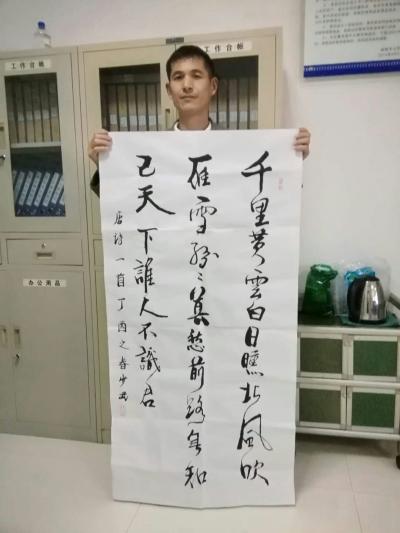 工作台帐
工作台帐
办公用品
千里黄雲白日曛北風吹
雁雪紛々莫愁前路無知
己天下誰人不識君
唐詩一首丁酉之春少